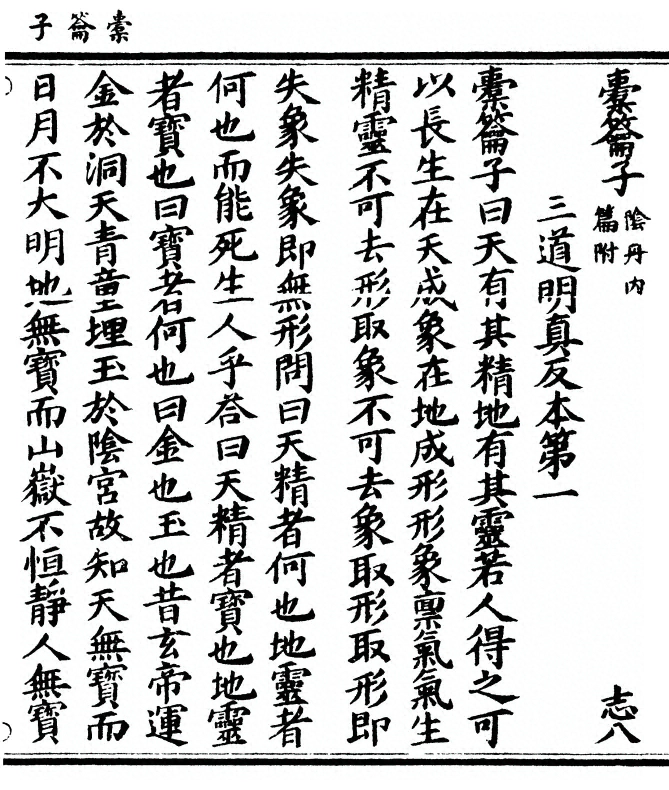 橐籥子
橐籥子 陰丹內篇附 志八
三道明真反本第一
橐籥子曰天有其精地有其靈若人得之可
以長生在天成象在地成形形象禀氣氣生
精靈不可去形取象不可去象取形取形即
失象失象即無形問曰天精者何也地靈者
何也而能死生人乎荅曰天精者寶也地靈
者寶也曰寶者何也曰金也玉也昔玄帝運
金於洞天青童埋玉於陰宮故知天無寶而
日月不大明地無寶而山嶽不恒靜人無寶